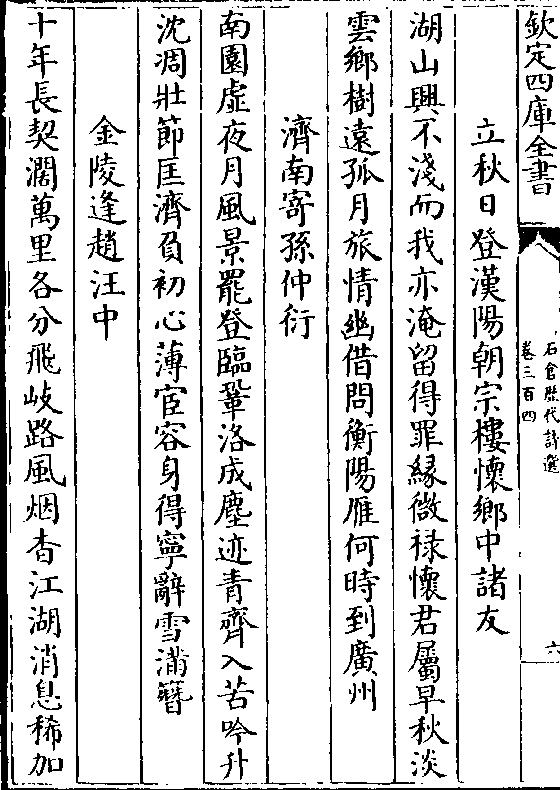 欽定四庫全書
石倉歷代詩選
卷三百四
六
立秋日登漢陽朝宗樓懷鄉中諸友
湖山興不淺而我亦淹留得罪緣微祿懷君屬早秋淡
雲鄉樹遠孤月旅情幽借問衡陽雁何時到廣州
濟南寄孫仲衍
南園虛夜月風景罷登臨鞏洛成塵迹青齊入苦吟升
沈凋壯節匡濟負初心薄宦容身得寧辭雪滿簪
金陵逢趙汪中
十年長契濶萬里各分飛岐路風烟杳江湖消息稀加